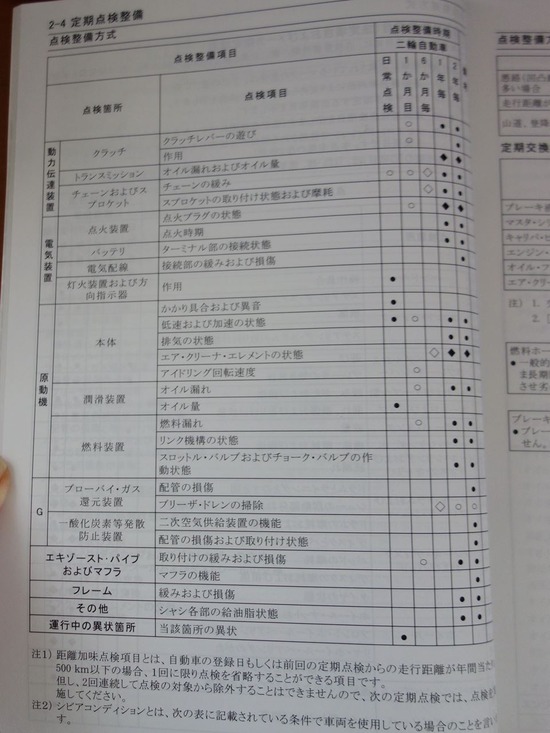 2-4 定期点検整備
点検整備方式
点検整備項目
点検整備時期
二輪自動車
点検箇所
点検項目
日常点検
1か月目
6か月毎
1年毎
2年毎
動力伝達装置
クラッチ
クラッチレバーの遊び ○ ● ●
作用 ○ ● ●
トランスミッション
オイル漏れおよびオイル量 ◆ ◆
チェーンおよびスプロケット
チェーンの緩み ○ ○ ◇ ● ●
スプロケットの取り付け状態および摩耗 ◇ ● ●
電気装置
点火装置
点火プラグの状態 ○ ◆ ◆
点火時期 ● ●
バッテリ
ターミナル部の接続状態 ● ●
電気配線
接続部の緩みおよび損傷 ●
灯火装置および方向指示器
作用 ●
原動機
本体
かかり具合および異音 ●
低速および加速の状態 ● ○ ● ●
排気の状態 ● ●
エア・クリーナ・エレメントの状態 ◇ ◆ ◆
アイドリング回転速度 ○
潤滑装置
オイル漏れ ○ ● ●
オイル量 ●
燃料装置
燃料漏れ ○ ● ●
リンク機構の状態 ● ●
スロットル・バルブおよびチョーク・バルブの作
動状態 ● ●
G
ブローバイ・ガス
還元装置
配管の損傷 ●
ブリーザ・ドレンの掃除 ◇ ○ ○
一酸化炭素等発散
防止装置
二次空気供給装置の機能 ●
配管の損傷および取り付け状態 ●
エキゾースト・パイプ
およびマフラ
取り付けの緩みおよび損傷 ○ ● ●
マフラの機能 ●
フレーム
緩みおよび損傷 ● ●
その他
シャシ各部の給油脂状態 ● ●
運行中の異状箇所
当該箇所の異状 ●
注1) 距離加味点検項目とは、自動車の登録日もしくは前回の定期点検からの走行距離が年間当た
500 km以下の場合、1回に限り点検を省略することができる項目です。
但し、2回連続して点検の対象から除外することはできませんので、次の定期点検では、点検を
施してください。
注2) シビアコンディションとは、次の表に記載されている条件で車両を使用している場合のことを言い
す。
点検整備方
悪路(凹凸
多い場合
走行距離が
山道、登降
定期交換
ブレーキ液
マスタ・シ
キャリパ・
エンジン・
オイル・フ
エア・クリー
注) 1.
2.
燃料ホー
● 一般的
ま長期
させ劣
ブレーキ
● ブレー
せん、